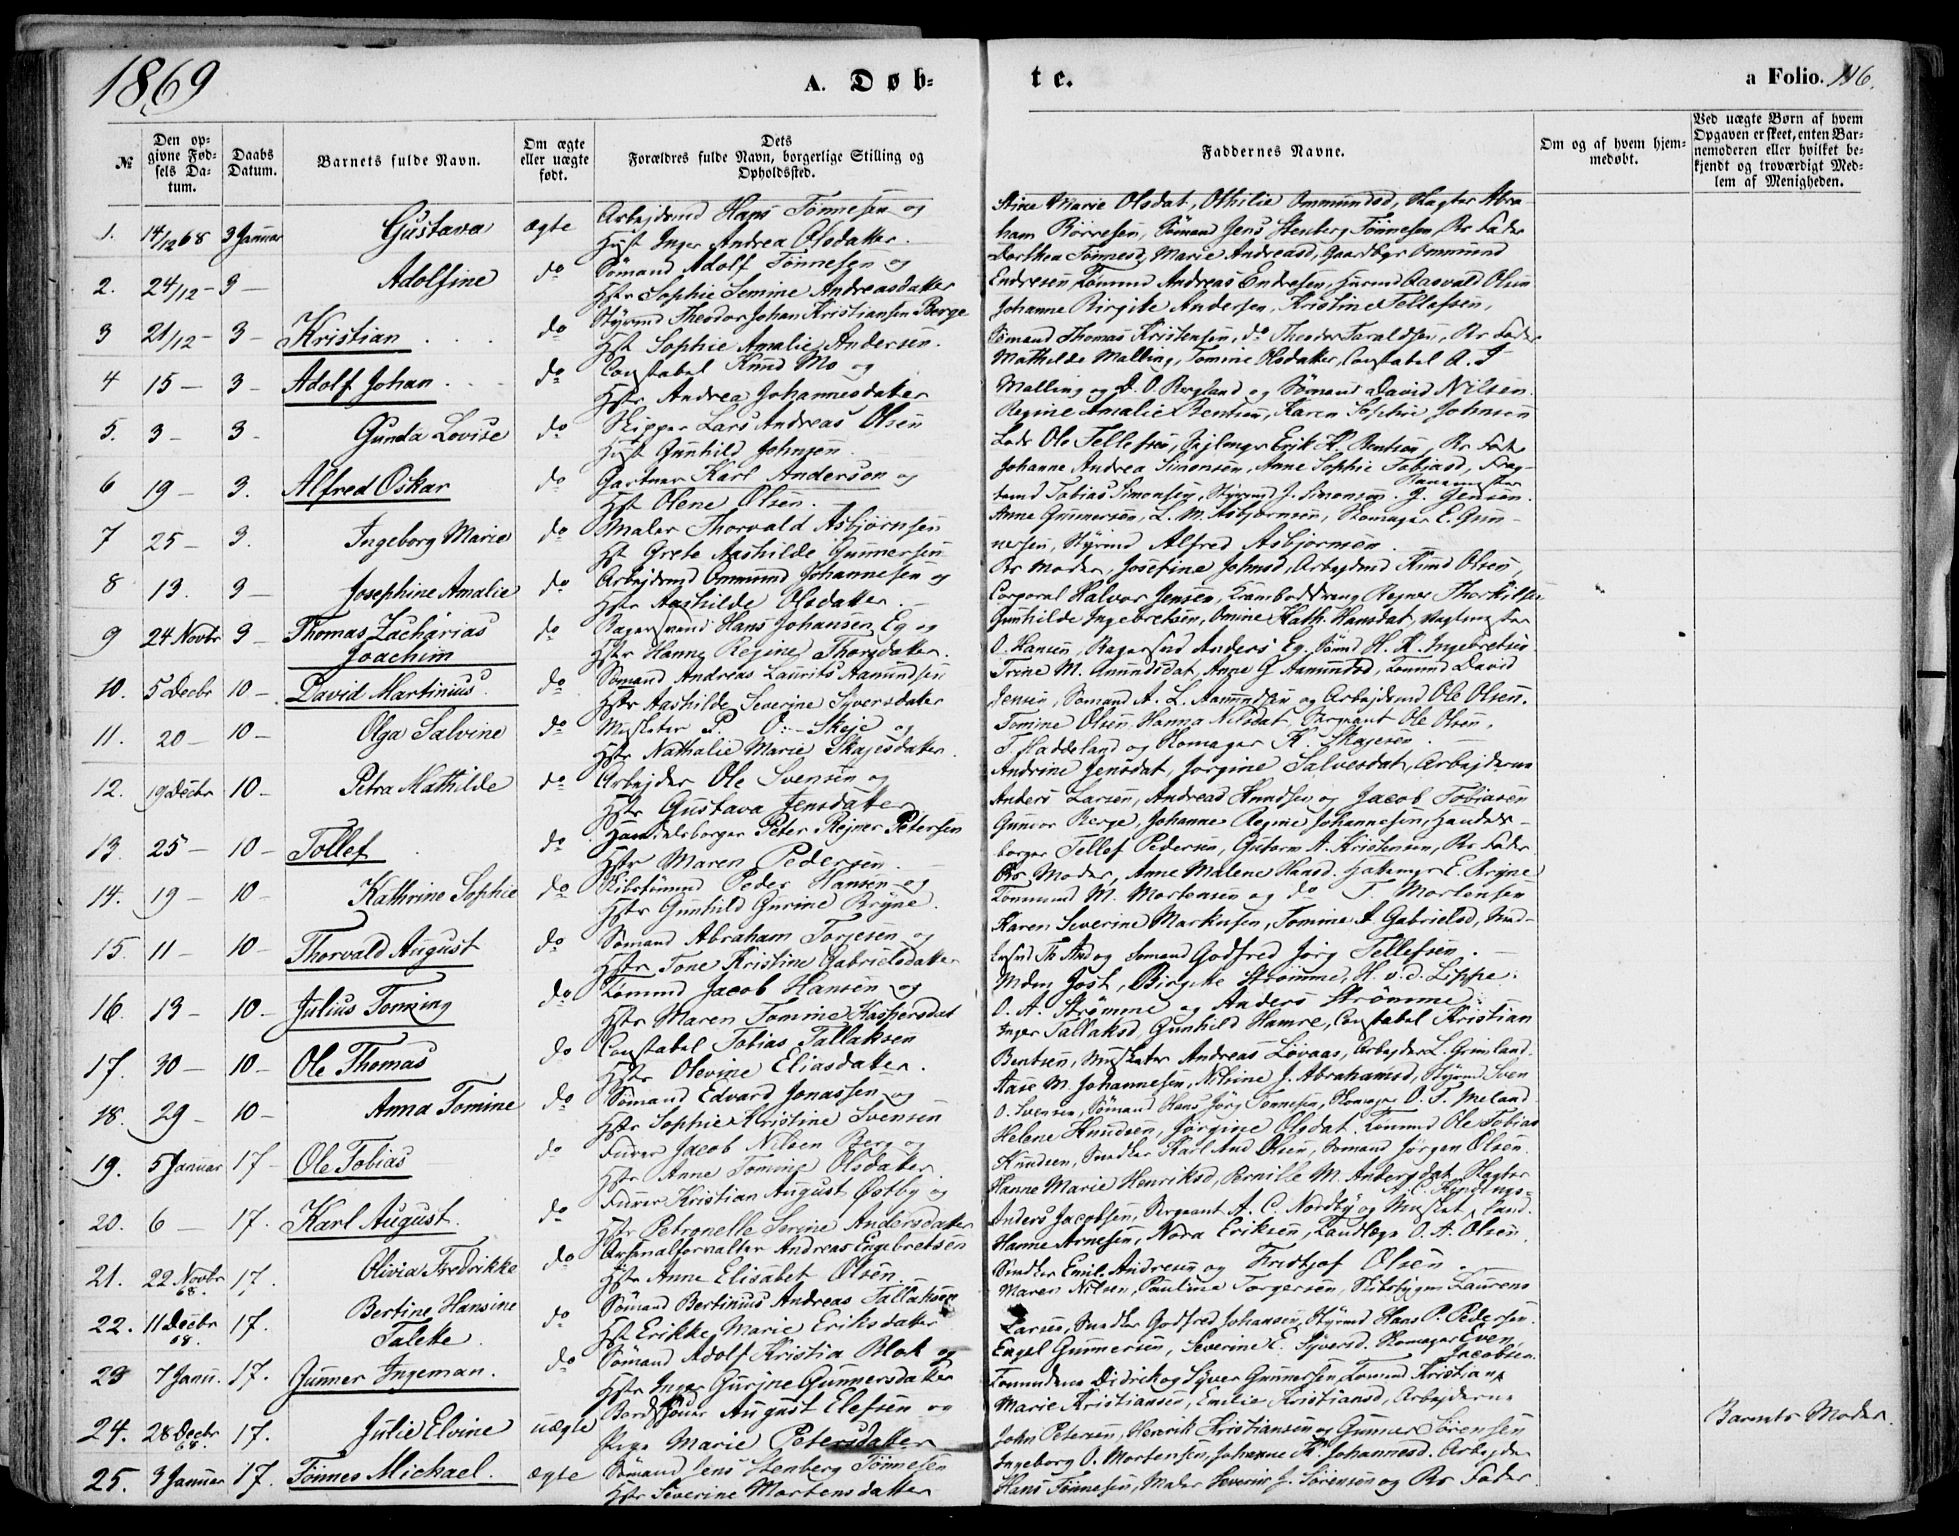 1869
A. Døb-
te.
a Folio. 116.
№
Den opgivne Fødsels Datum.
Daabs Datum.
Barnets fulde Navn.
Om ægte eller uægte født.
Dets Forældres fulde Navn, borgerlige Stilling og Opholdssted.
Faddernes Navne.
Om og af hvem hjemmedøbt.
Ved uægte Børn af hvem Opgaven er skeet, enten Barnemoderen eller hvilket bekjendt og troværdigt Medlem af Menigheden.
1. 14/12 68 3 Januar Gustava ægte Arbejdsmd Hans Tønnesen og
Hust Inger Andrea Olsdatter.
Stine Marie Olsdat, Othilie Ommundsd, Slagter Abra-
ham Børresen, Sømand Jens Stenberg Tønnesen, Br Fader
2. 24/12 - 3 - Adolfine do Sømand Adolf Tønnesen og
Hstr Sophie Semine Andreasdatter
Dorthea Tønnesd, Marie Andreasd, Gaardbgr Ommund
Endresen, Tømmd Andreas Endresen, Aasvald Olsen
3 21/12 - 3 - Kristian do Styrmd Theodor Johan Kristiansen Berge
Hst Sophie Amalie Andersen.
Johanne Birgite Andersen, Kristine Tellefsen,
Sømand Thomas Kristensen, do Theodor Taraldsen, Br Fader
4 15 - 3 - Adolf Johan do Constabel Knud Mo og
Hstr Andrea Johannesdatter
Mathilde Malling, Tomine Olsdatter, Constabel A. T
Malling og D. O. Bergland og Sømand David Nilsen.
5. 3 - 3 - Gunda Lovise do Skipper Lars Andreas Olsen
Hust Gunhild Johnsen.
Regine Amalie Bentsen, Karen Sophie Johnsen
Lods Ole Tellefsen, Sejlmgr Erik A. Bentsen, Br Fader
6 19 - 3. Alfred Oskar do Gartner Karl Anderson og
Hst Olene Olsen.
Johanne Andrea Simonsen, Anne Sophie Tobiasd, Frag-
temd Tobias Simonsen, Styrmd J. Simonsen, J. Jensen.
7 25 - 3. Ingeborg Marie do Maler Thorvald Asbjørnsen
Hst Grete Aashilde Gunnersen
Anne Gunnersen, L. M. Asbjørnsen, Skomager E. Gun-
nersen, Styrmd Alfred Asbjørnsen
8 13. 3 - Josephine Amalie do Arbejdsmd Ommund Johannesen og
Hstr Aashilde Olsdatter.
Br Moder, Josefine Johnsd, Arbejdsmd Knud Olsen,
Corporal Halvor Jensen, Krambodsvend Regner Thorkilsen
9 24 Novbr 3 - Thomas Zacharias
Joachim do Bagersvend Hans Johansen Eg og
Hstr Hanne Regine Thorsdatter.
Gunhilde Ingebretsen, Omine Kath. Hansdat, Vagtmester
O. Hansen, Bagersvd Anders Eg, Sømd H. K. Ingebretsen
10. 5 Decbr 10 - David Martinius. do Sømand Andreas Laurits Aamundsen
Hstr Aashilde Severine Syversdatter
Trine M. Amundsdat, Anne G Aamundsd, Tømmd David
Jensen, Sømand A. L. Aamundsen og Arbejdsmd Ole Olsen.
11. 20 - 10 - Olga Salvine do Musketer P. O. Skeje og
Hstr Nathalie Marie Skajesdatter.
Tomine Olsen, Hanna Nilsdat, Sergeant Ole Olsen,
T. Haddeland og Skomager K. Skajesen.
12. 19 Decbr 10 - Petra Mathilde do Arbejder Ole Svensen og
Hstr Gustava Jensdatter
Andrine Jensdat, Jorgine Salvesdat, Arbejderne
Anders Larsen, Andreas Knudsen og Jacob Tobiasen
13. 25 - 10 - Tollef do Handelsborger Peter Rejner Petersen
Hstr Maren Pedersen.
Gunvor Berge, Johanne Regine Johannesen, Handels-
borger Tellef Pedersen, Guttorm A. Kristensen, Br Fader
14. 19 - 10 - Kathrine Sophie do Skibstømmd Peder Hansen og
Hstr Gunhild Gurine Bryne.
Br Moder, Anne Malene Hansd. E. Bryne
Tømmmd M. Mortensen og do T. Mortensen
15. 11 - 10 - Thorvald August do Sømand Abraham Torjesen og
Hstr Tone Kristine Gabrielsdatter
Karen Severine Markusen, Tomine A. Gabrielsd,
og Sømand Godfred Jørg Tellefsen.
16. 13 - 10 - Julius Torming do Tømmd Jacob Hansen og
Hstr Maren Tomine Kaspersdat
Mdm Jost, Birgitte Strømme, H. v. d. Lippe.
O. A. Strømme og Anders Strømme.
17. 30 - 10 - Ole Thomas do Constabel Tobias Tallaksen
Hstr Olevine Eliasdatter.
Inger Tallaksd, Gunhild Hamre, Constabel Kristian
Bentsen, Musketer Andreas Løvaas, Arbejder L. Grimland.
18. 29 - 10 - Anna Tomine do Sømand Edvard Jonassen og
Hstr Sophie Kristine Svensen
Aase M. Johannesen, Nilsine J. Abrahamsd, Styrmd Sven
O. Svensen, Sømand Hans Jørg Tønnesen, Skomager O. T. Meland.
19. 5 Januar 17 - Ole Tobias do Furer Jacob Nilsen Berg og
Hstr Anne Tomine Olsdatter.
Helene Knudsen, Jørgine Olsdat. Tømmd Ole Tobias
Knudsen, Snedker Karl And Olsen, Sømand Jørgen Olsen.
20. 6 - 17. Karl August. do Furer Kristian August Østby og
Hstr Petronelle Serine Andersdatter
Hanne Marie Henriksd, Pernille M. Andersdat, Slagter
Anders Jacobsen, Sergeant A. C. Nordby og Musket. A. C. Kindlings-
land.
21. 22 Novbr 68. 17. Olivia Fredrikke do Arsenalforvalter Andreas Engebretsen
Hstr Anne Elisabet Olsen.
Hanne Arnesen, Nora Eriksen, Tandlæge O. A. Olsen,
Snedker Emil Andresen og Fridtjof Olsen.
22. 11 Decbr 68. 17. Bertine Hansine
Taleke. do Sømand Bertinius Andreas Tallaksen
Hst Erikke Marie Eriksdatter
Maren Nilsen, Paulina Torgersen, Skibsbygm Laurens
Larsen, Snedker Godfred Johansen, Styrmd Hans P. Pedersen.
23 7 Janu. 17. Gunner Ingeman. do Sømand Adolf Kristia Blok og
Hstr Inger Gurine Gunnersdatter
Engel Gunnersen, Severine E. Syversd. Skomager Even
Jacobsen.
Tømmdene Didrik og Syver Gunnersen, Tømmd Kristian
24. 28 Decbr 68. 17. Julie Elvine uægte August Elefsen og
Pige Marie Petersdatter
Marie Kristiansen, Emilie Kristiansd, Arbejderne
John Petersen, Henrik Kristiansen og Gunner Sørensen
Barnets Moder.
25. 3 Januar 17. Tønnes Michael. ægte Sømand Jens Stenberg Tønnesen
Hstr Severine Mortensdatter
Ingeborg O. Mortensen, Johanne Th. Johannesd. Arbejder
Hans Tønnesen, Maler Severin J. Sørensen og Br Fader